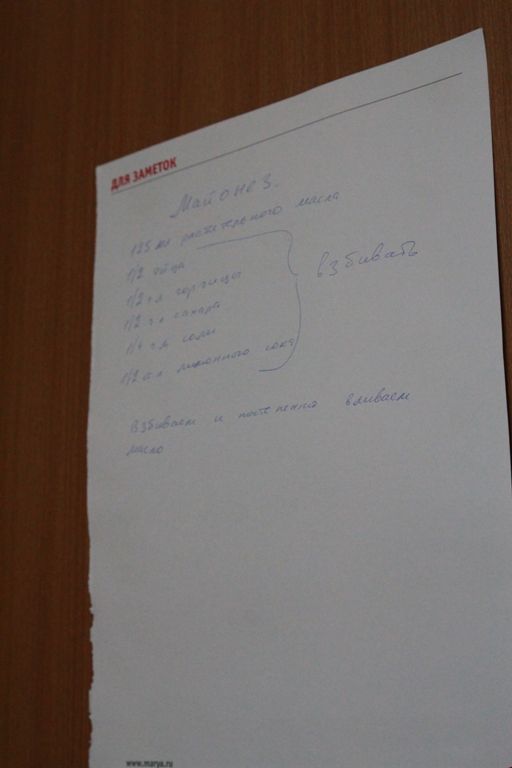 ДЛЯ ЗАМЕТОК
Майонез.
125 мл растительного масла
1/2 яйца
1/2 ч л горчицы
1/2 ч л сахара
1/4 ч л соли
1/2 ст л лимонного сока
взбивать
взбиваем и постепенно вливаем
масло
www.marya.ru